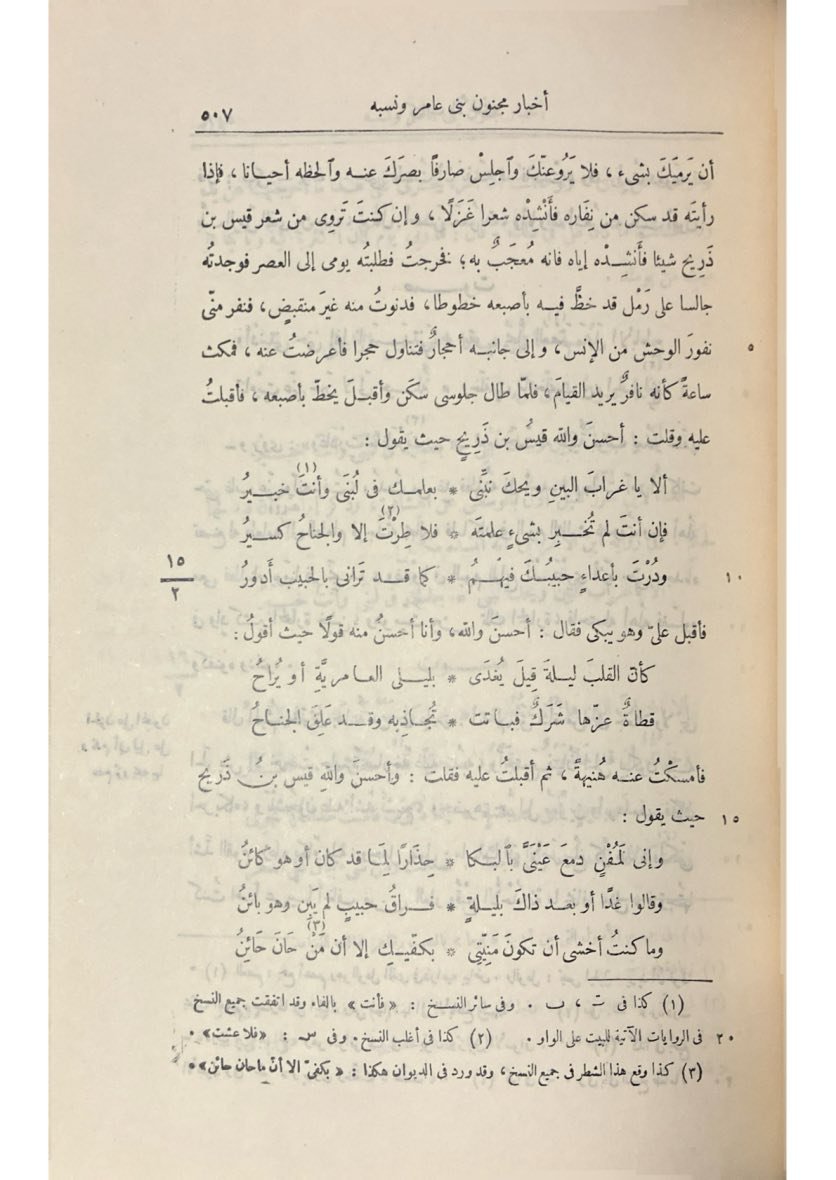 أخبار مجنون بنى عامر ونسبه
٥٠٧
أن يَرمِيَكَ بشىء ، فلا يَرُوعنّكَ وٱجلِسْ صارفًا بصرَكَ عنه وٱلحظه أحيانا ، فإذا
رأيتَه قد سكن من نِفَاره فأَنْشِدْه شعرا غَزَلًا ، وإن كنتَ تَروِى من شعر قيس بن
ذَرِيح شيئا فأَنشِدْه إياه فانه مُعجَبٌ به ؛ فخرجتُ فطلبتُه يومى إلى العصر فوجدتُه
جالسا على رَمْل قد خطَّ فيه بأصبعه خطوطا ، فدنوتُ منه غيرَ منقبضٍ ، فنفر منّى
٥ نفورَ الوحش من الإنس ، وإلى جانبه أحجارٌ فتناول حجرا فأعرضتُ عنه ، فمكث
ساعةً كأنه نافرٌ يريد القيامَ ، فلمّا طال جلوسى سكَن وأقبلَ يخطّ بأصبعه ، فأقبلتُ
عليه وقلت : أحسنَ والله قيسُ بن ذَرِيحٍ حيث يقول :
ألا يا غرابَ البينِ ويحكَ نبِّنِى * بعلمك فى لُبْنَى وأنتَ (١) خبيرُ
فإن أنتَ لم تُخبِر بشىءٍ علمتَه * فلا طِرْتَ (٢) إلا والجناحُ كسيرُ
١٠ ودُرْتَ بأعداءٍ حبيبُكَ فيهمُ * كما قد تَرانى بالحبيب أَدورُ
١٥
٢
فأقبل علىّ وهو يبكى فقال : أحسنَ والله ، وأنا أحسنُ منه قولًا حيث أقولُ :
كأنّ القلبَ ليلةَ قِيلَ يُغدَى * بليلى العامريَّةِ أو يُراحُ
قطاةٌ عزّها شَرَكٌ فباتت * تُجاذِبه وقد عَلِقَ الجناحُ
فأمسكْتُ عنه هُنيهةً ، ثم أقبلتُ عليه فقلت : وأحسنَ واللهِ قيس بنُ ذَرِيح
١٥ حيث يقول :
وإنى لَمُفْنٍ دمعَ عَيْنَىَّ بٱلبكا * حِذَارًا لِمَا قد كان أو هو كائنُ
وقالوا غدًا أو بعد ذاكَ بليلةٍ * فراقُ حبيبٍ لم يَبِن وهو بائنُ
وما كنتُ أخشى أن تكونَ مَنِيّتِى * بكفّيكِ إلا أن مَنْ (٣) حَانَ حَائِنُ
(١) كذا فى ت ، ب . وفى سائر النسخ : «فأنت» بالفاء وقد اتفقت جميع النسخ
٢٠ فى الروايات الآتية للبيت على الواو . (٢) كذا فى أغلب النسخ . وفى س : «فلا عشت» .
(٣) كذا وقع هذا الشطر فى جميع النسخ ، وقد ورد فى الديوان هكذا : «بكفىّ الا أنّ ما حان حائن» .